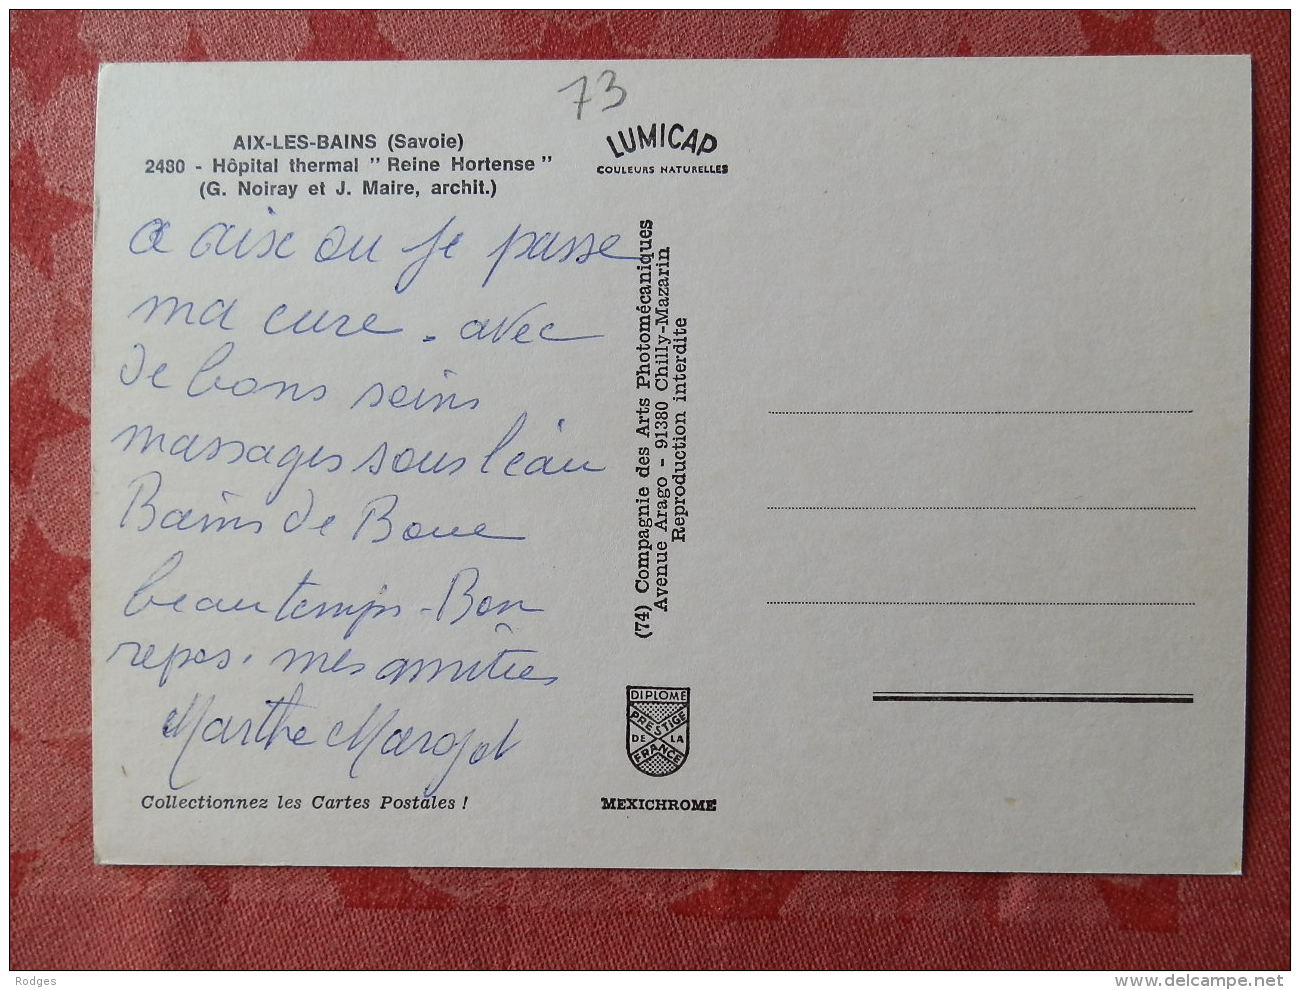 73
AIX-LES-BAINS (Savoie)
2480 - Hôpital thermal " Reine Hortense "
(G. Noiray et J. Maire, archit.)
LUMICAP
COULEURS NATURELLES
a aix ou je passe
ma cure. avec
de bons soins
massages sous l'eau
Bains de Boue
beau temps - Bon
repos. mes amitiés
Marthe Margot
Collectionnez les Cartes Postales !
(74) Compagnie des Arts Photomécaniques
Avenue Arago - 91380 Chilly-Mazarin
Reproduction interdite
DIPLOME
PRESTIGE
DE LA
FRANCE
MEXICHROME
Rodges
www.delcampe.net